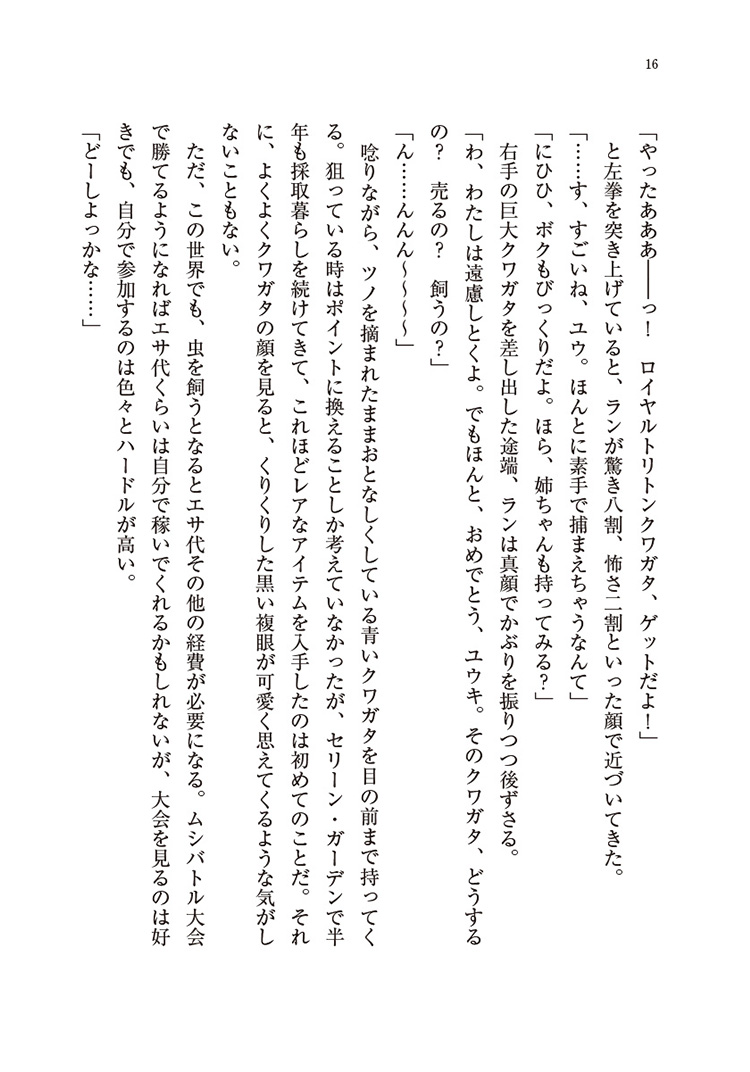 16
「やったあああ――っ！　ロイヤルトリトンクワガタ、ゲットだよ！」
　と左拳を突き上げていると、ランが驚き八割、怖さ二割といった顔で近づいてきた。
「……す、すごいね、ユウ。ほんとに素手で捕まえちゃうなんて」
「にひひ、ボクもびっくりだよ。ほら、姉ちゃんも持ってみる？」
　右手の巨大クワガタを差し出した途端、ランは真顔でかぶりを振りつつ後ずさる。
「わ、わたしは遠慮しとくよ。でもほんと、おめでとう、ユウキ。そのクワガタ、どうする
の？　売るの？　飼うの？」
「ん……んんん～～～～」
　唸りながら、ツノを摘まれたままおとなしくしている青いクワガタを目の前まで持ってく
る。狙っている時はポイントに換えることしか考えていなかったが、セリーン・ガーデンで半
年も採取暮らしを続けてきて、これほどレアなアイテムを入手したのは初めてのことだ。それ
に、よくよくクワガタの顔を見ると、くりくりした黒い複眼が可愛く思えてくるような気がし
ないこともない。
　ただ、この世界でも、虫を飼うとなるとエサ代その他の経費が必要になる。ムシバトル大会
で勝てるようになればエサ代くらいは自分で稼いでくれるかもしれないが、大会を見るのは好
きでも、自分で参加するのは色々とハードルが高い。
「どーしよっかな……」